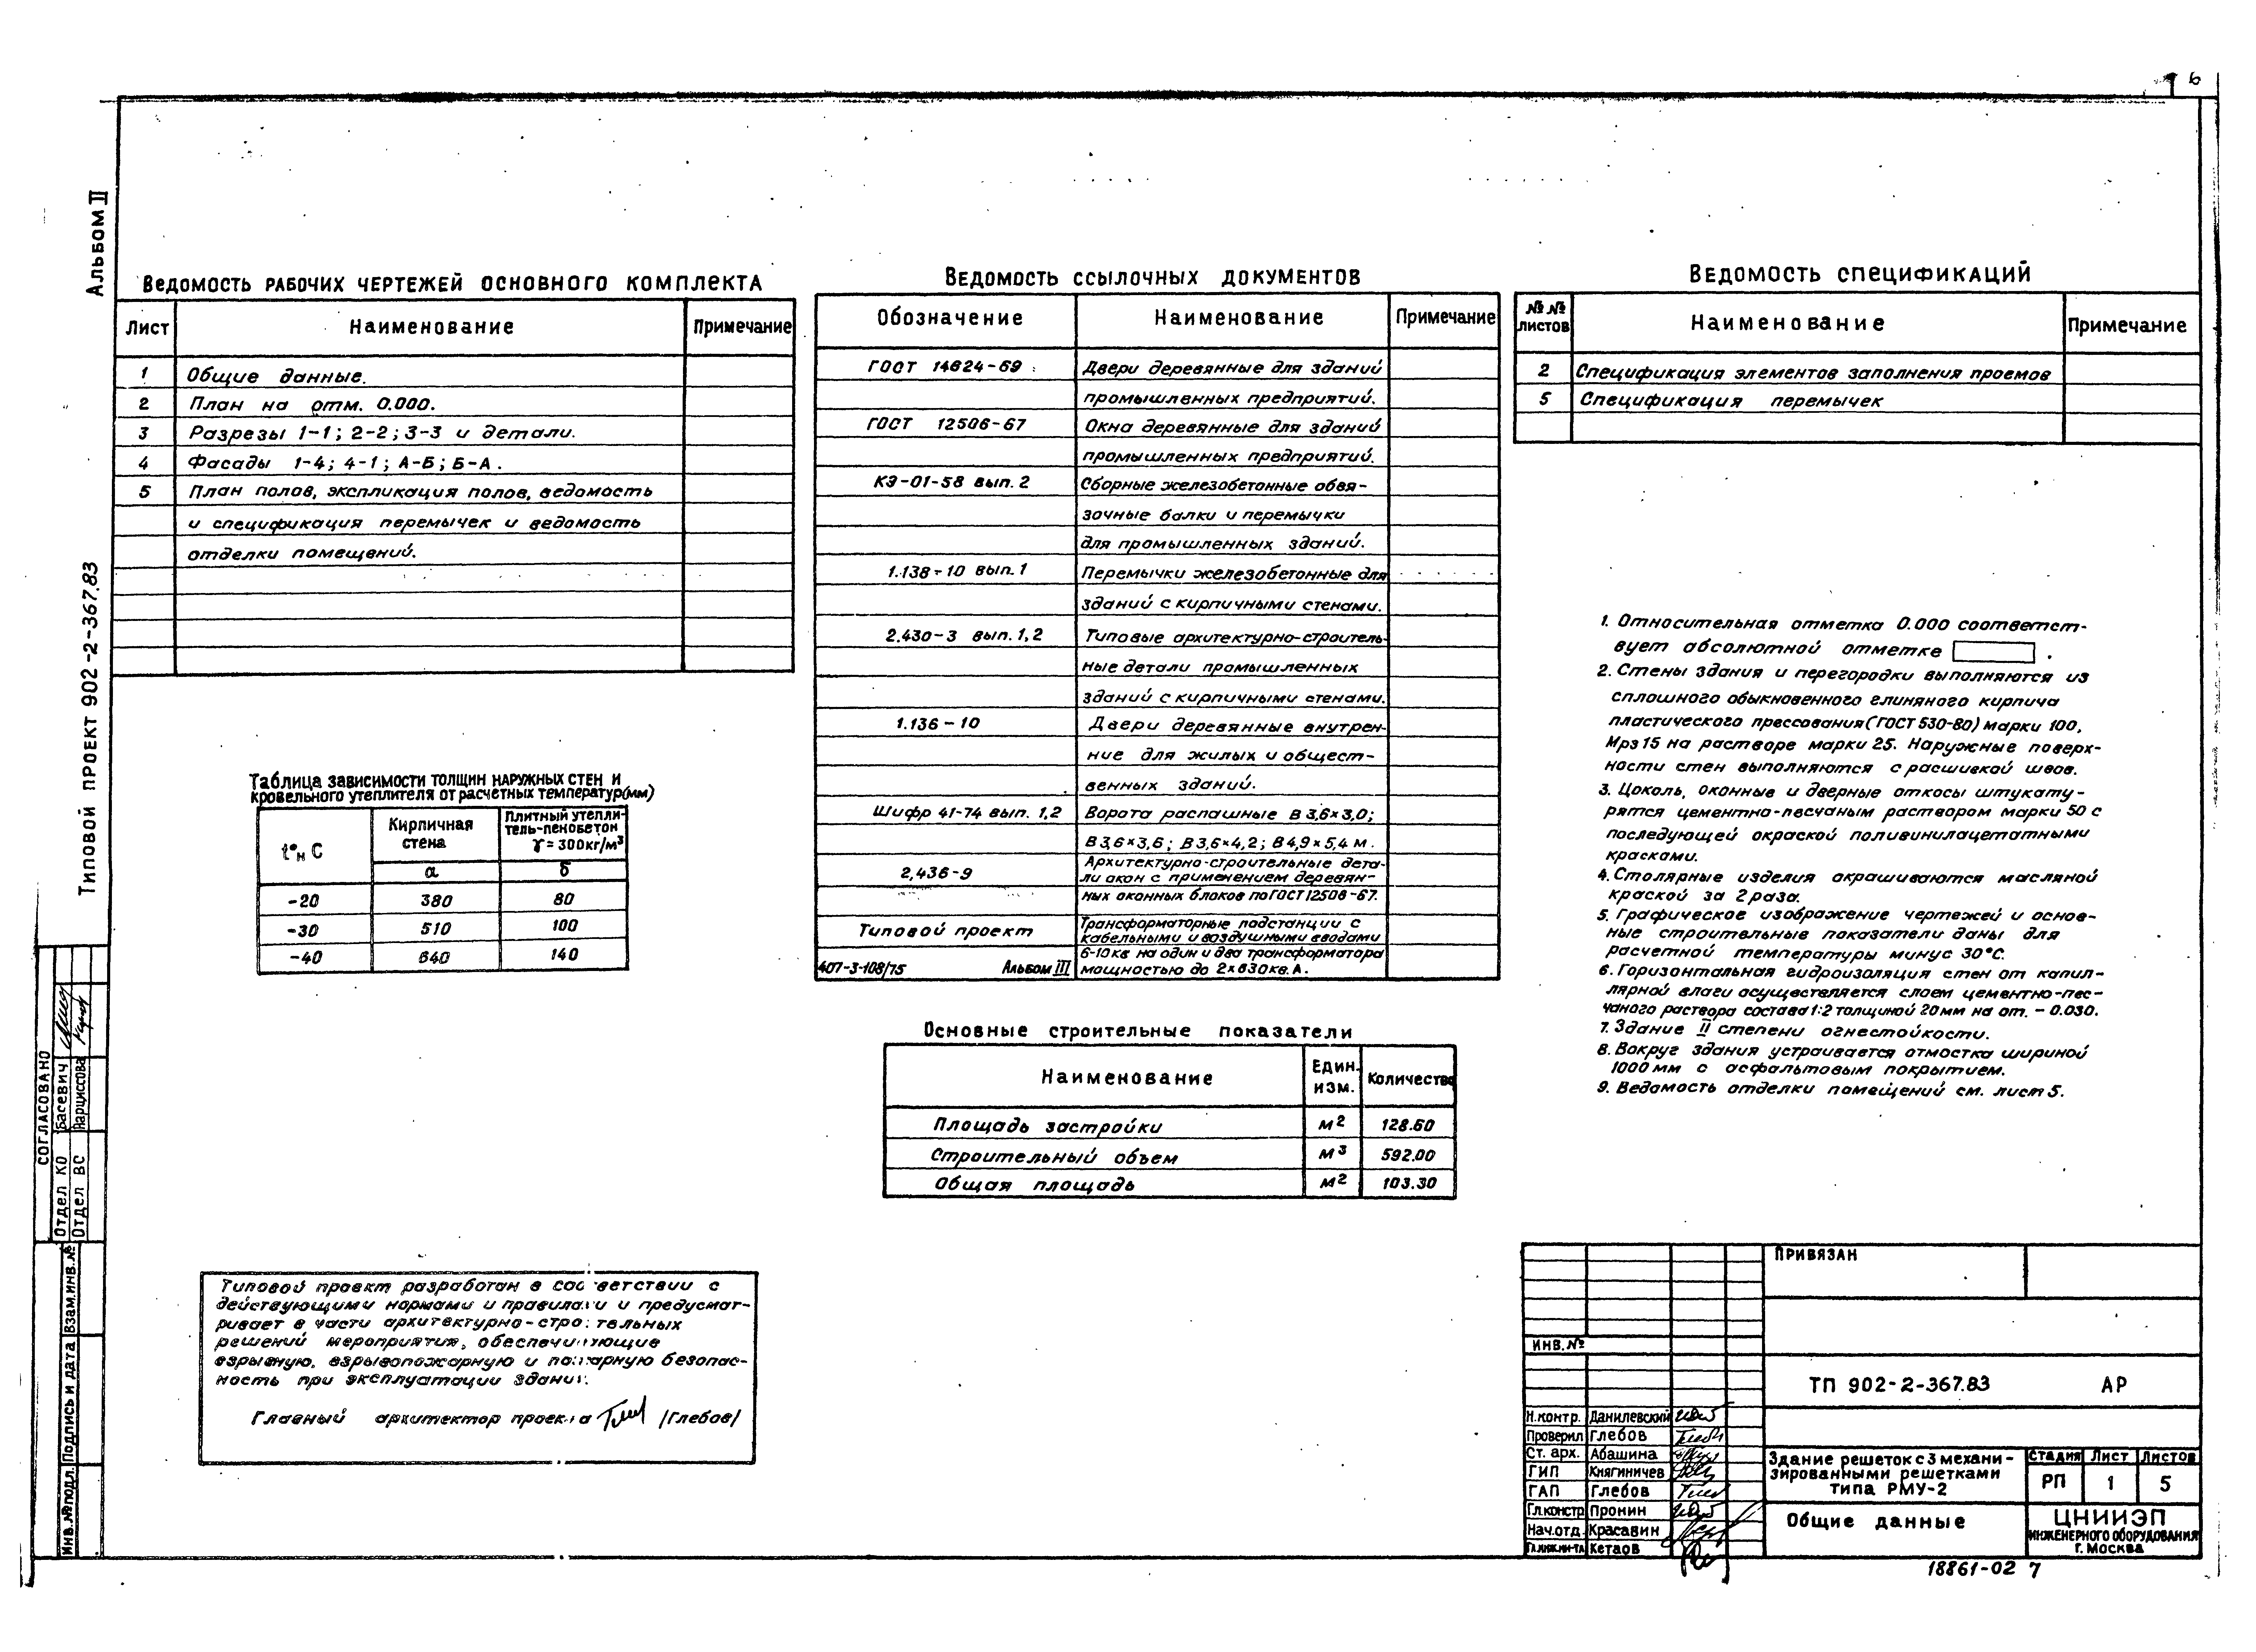 6
Альбом II
Типовой проект 902-2-367.83
Ведомость рабочих чертежей основного комплекта
Лист Наименование Примечание
1 Общие данные.
2 План на отм. 0.000.
3 Разрезы 1-1; 2-2; 3-3 и детали.
4 Фасады 1-4; 4-1; А-Б; Б-А.
5 План полов, экспликация полов, ведомость
и спецификация перемычек и ведомость
отделки помещений.
Таблица зависимости толщин наружных стен и
кровельного утеплителя от расчетных температур(мм)
t°н С Кирпичная стена Плитный утепли-
тель-пенобетон
γ = 300кг/м³
а б
-20 380 80
-30 510 100
-40 640 140
Ведомость ссылочных документов
Обозначение Наименование Примечание
ГОСТ 14624-69 Двери деревянные для зданий
промышленных предприятий.
ГОСТ 12506-67 Окна деревянные для зданий
промышленных предприятий.
КЭ-01-58 вып. 2 Сборные железобетонные обвя-
зочные балки и перемычки
для промышленных зданий.
1.138-10 вып. 1 Перемычки железобетонные для
зданий с кирпичными стенами.
2.430-3 вып. 1, 2 Типовые архитектурно-строитель-
ные детали промышленных
зданий с кирпичными стенами.
1.136-10 Двери деревянные внутрен-
ние для жилых и общест-
венных зданий.
Шифр 41-74 вып. 1,2 Ворота распашные В 3,6×3,0;
В 3,6×3,6; В 3,6×4,2; В 4,9×5,4 м.
2,436-9 Архитектурно-строительные дета-
ли окон с применением деревян-
ных оконных блоков по ГОСТ 12506-67.
Типовой проект Трансформаторные подстанции с
кабельными и воздушными вводами
407-3-108/75 Альбом III 6-10кв на один и два трансформатора
мощностью до 2×630кв. А.
Основные строительные показатели
Наименование Един. изм. Количество
Площадь застройки м² 128.60
Строительный объем м³ 592.00
Общая площадь м² 103.30
Ведомость спецификаций
№№ листов Наименование Примечание
2 Спецификация элементов заполнения проемов
5 Спецификация перемычек
1. Относительная отметка 0.000 соответст-
вует абсолютной отметке .
2. Стены здания и перегородки выполняются из
сплошного обыкновенного глиняного кирпича
пластического прессования (ГОСТ 530-80) марки 100,
Мрз 15 на растворе марки 25. Наружные поверх-
ности стен выполняются с расшивкой швов.
3. Цоколь, оконные и дверные откосы штукату-
рятся цементно-песчаным раствором марки 50 с
последующей окраской поливинилацетатными
красками.
4. Столярные изделия окрашиваются масляной
краской за 2 раза.
5. Графическое изображение чертежей и основ-
ные строительные показатели даны для
расчетной температуры минус 30°С.
6. Горизонтальная гидроизоляция стен от капил-
лярной влаги осуществляется слоем цементно-пес-
чаного раствора состава 1:2 толщиной 20мм на от. - 0.030.
7. Здание II степени огнестойкости.
8. Вокруг здания устраивается отмостка шириной
1000 мм с асфальтовым покрытием.
9. Ведомость отделки помещений см. лист 5.
Типовой проект разработан в соответствии с
действующими нормами и правилами и предусмат-
ривает в части архитектурно-строительных
решений мероприятия, обеспечивающие
взрывную, взрывопожарную и пожарную безопас-
ность при эксплуатации здания.
Главный архитектор проекта /Глебов/
Согласовано
Отдел КО Басевич
Отдел ВС Нарциссова
Инв.№ подл. Подпись и дата Взам.инв.№
Привязан
Инв.№
ТП 902-2-367.83 АР
Н.контр. Данилевский
Проверил Глебов
Ст. арх. Абашина
ГИП Княгиничев
ГАП Глебов
Гл.констр Пронин
Нач.отд. Красавин
Гл.инж.ин-та Кетаов
Здание решеток с 3 механи-
зированными решетками
типа РМУ-2
Стадия Лист Листов
РП 1 5
Общие данные
ЦНИИЭП
инженерного оборудования
г. Москва
18861-02 7